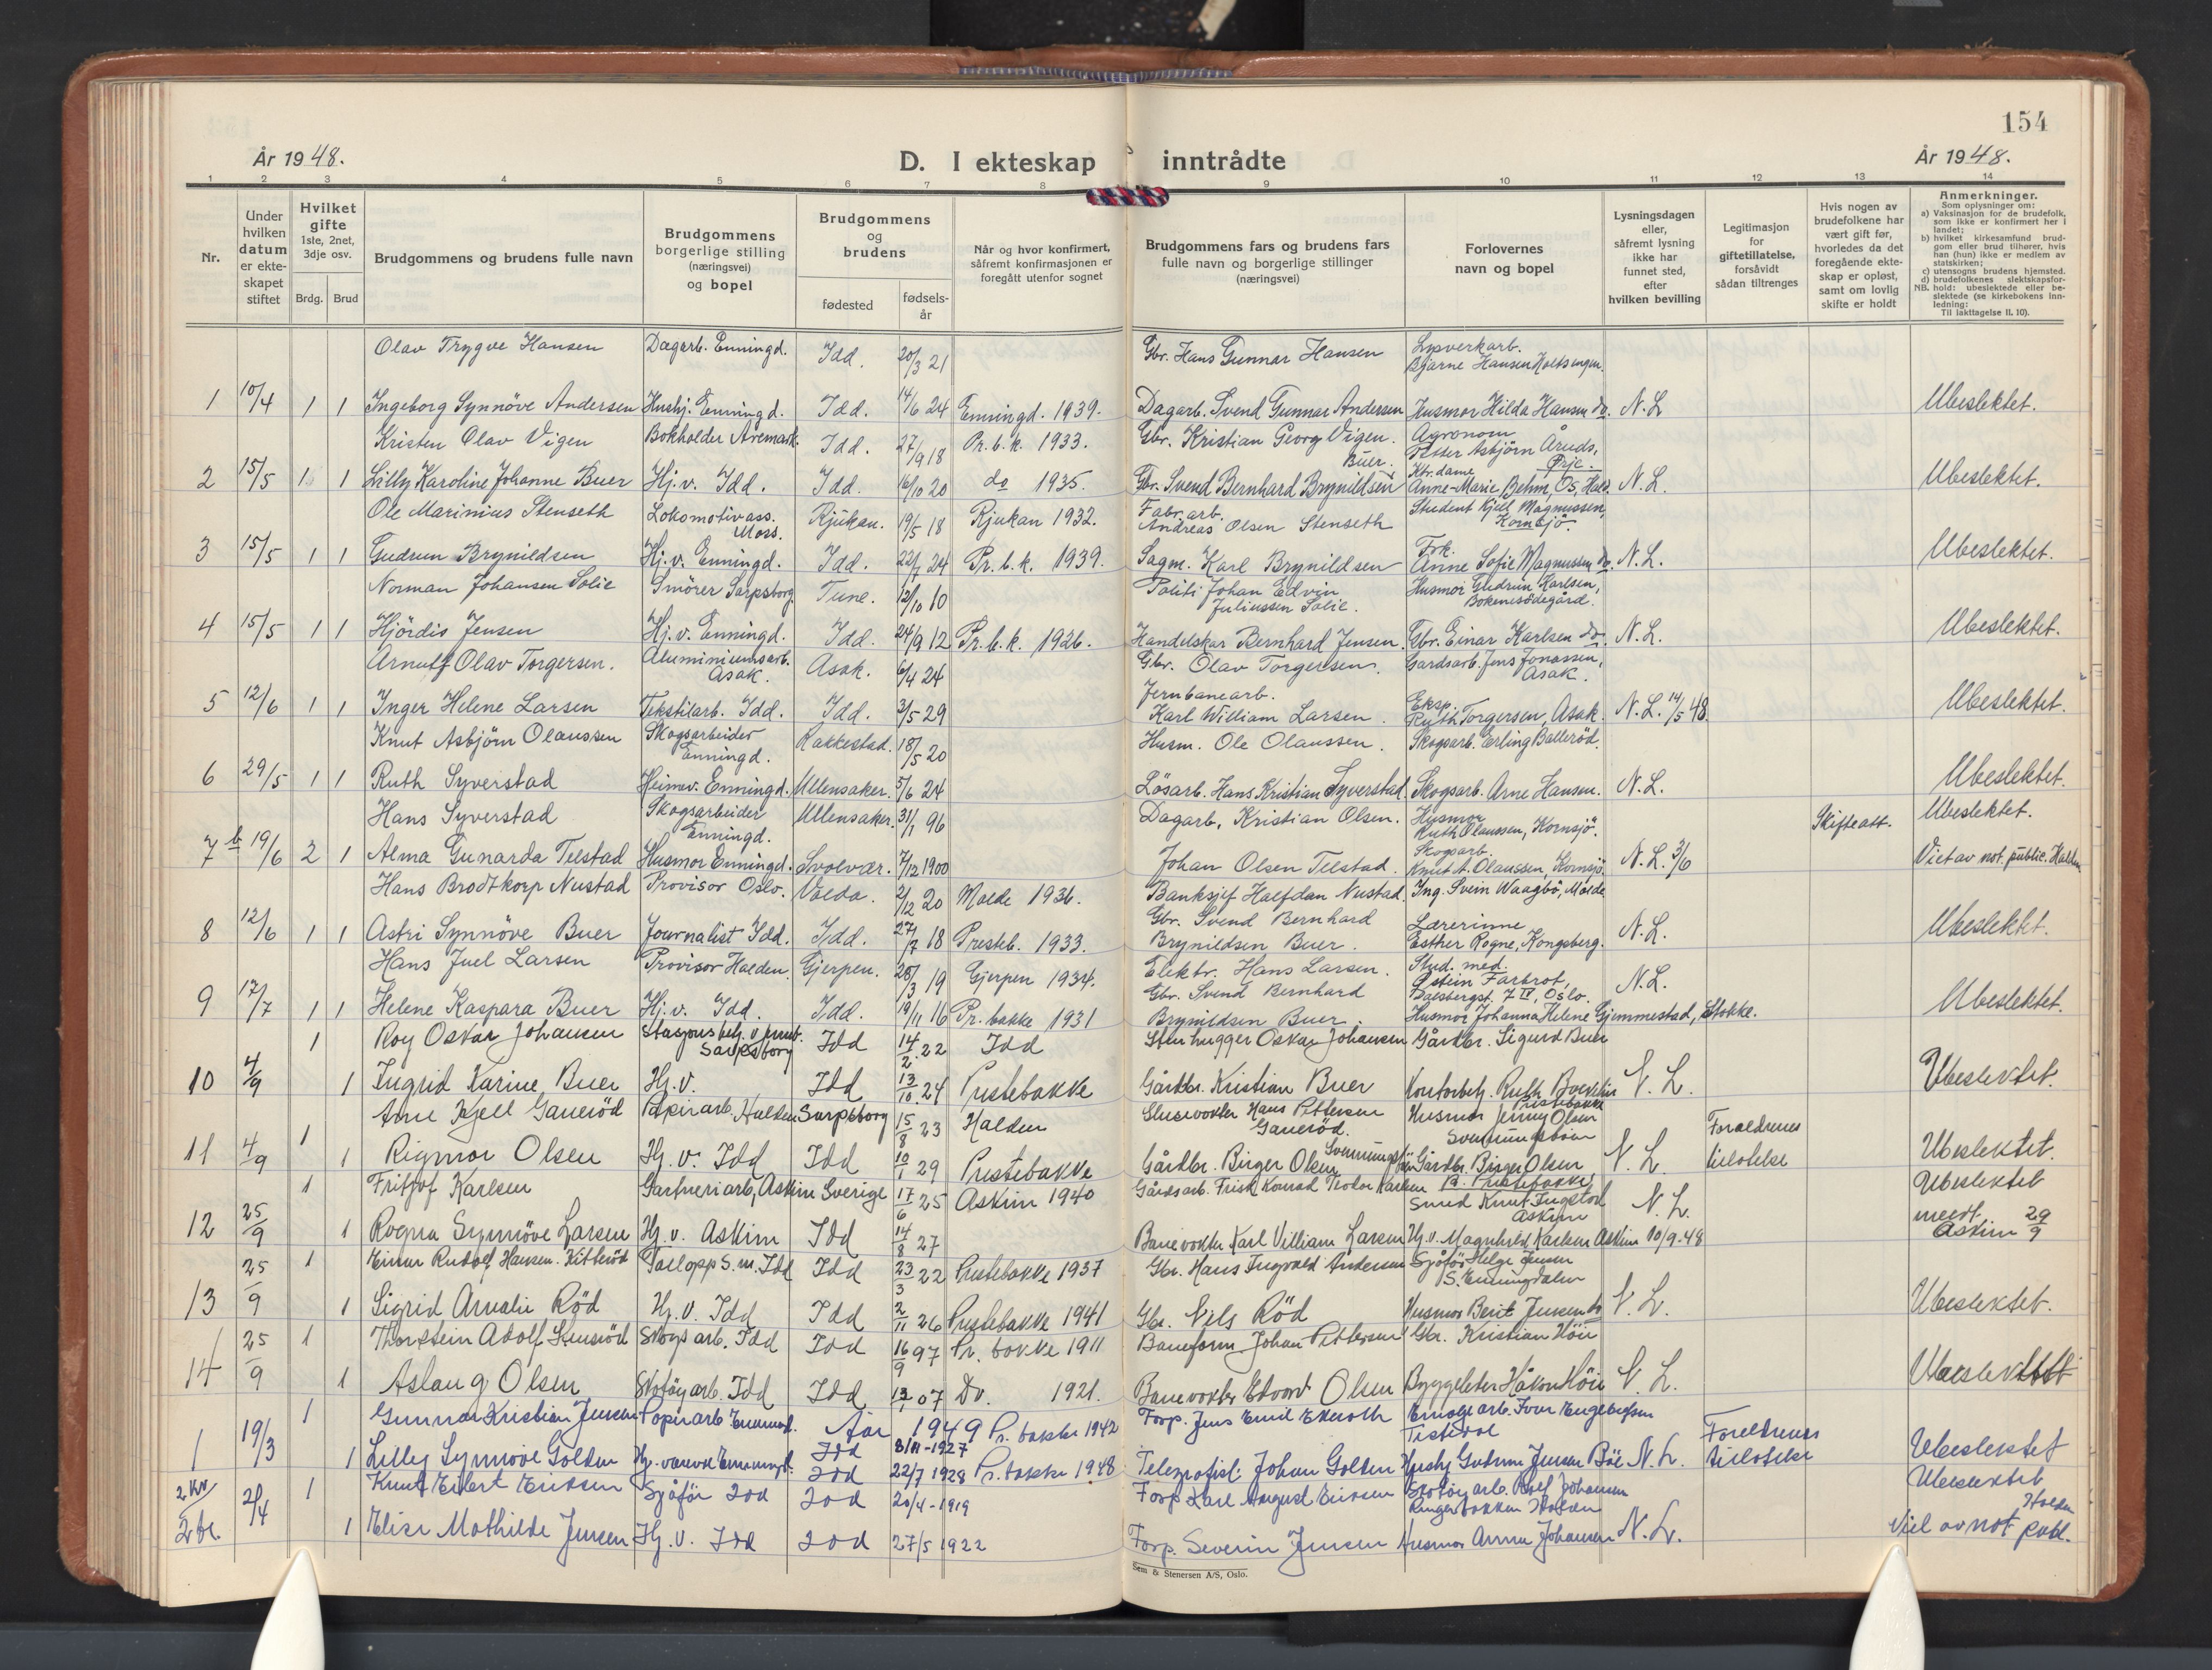 154
År 1948.
D. I ekteskap inntrådte
År 1948.
1 2 3 4 5 6 7 8 9 10 11 12 13 14
Nr.
Under hvilken datum er ekteskapet stiftet
Hvilket gifte 1ste, 2net, 3dje osv.
Brdg. Brud
Brudgommens og brudens fulle navn
Brudgommens borgerlige stilling (næringsvei) og bopel
Brudgommens og brudens
fødested
fødselsår
Når og hvor konfirmert, såfremt konfirmasjonen er foregått utenfor sognet
Brudgommens fars og brudens fars fulle navn og borgerlige stillinger (næringsvei)
Forlovernes navn og bopel
Lysningsdagen eller, såfremt lysning ikke har funnet sted, efter hvilken bevilling
Legitimasjon for giftetillatelse, forsåvidt sådan tiltrenges
Hvis nogen av brudefolkene har vært gift før, hvorledes da det foregående ekteskap er opløst, samt om lovlig skifte er holdt
Anmerkninger.
Som oplysninger om:
a) Vaksinasjon for de brudefolk, som ikke er konfirmert her i landet;
b) hvilket kirkesamfund brudgom eller brud tilhører, hvis han (hun) ikke er medlem av statskirken;
c) utensogns brudens hjemsted.
d) brudefolkenes slektskapsforhold: ubeslektede eller beslektede (se kirkebokens Innledning:
NB.
Til iakttagelse II. 10).
Olav Trygve Hansen Dagarb. Enningd. Idd. 20/3 21 Gbr. Hans Gunnar Hansen Lysverkarb. Bjarne Hansen Holtsengen.
1 10/4 1 1 Ingeborg Synnöve Andersen Hushj. Enningd. Idd. 14/6 24 Enningd. 1939. Dagarb. Svend Gunnar Andersen Husmor Hilda Hansen do. N.L. Ubeslektet.
Kristen Olav Vigen Bokholder Aremark. Idd. 27/9 18 Pr.b.k. 1933. Gbr. Kristian Georg Vigen. Agronom Petter Asbjörn Åruds, Ørje.
2 15/5 1 1 Lilly Karoline Johanne Buer Hj.v. Idd. Idd. 16/10 20 do 1935. Gbr. Svend Bernhard Brynildsen Buer. Ktr.dame Anne-Marie Behm, Os, Hald. N.L. Ubeslektet.
Ole Marinius Stenseth Lokomotivass. Moss. Rjukan. 19/5 18 Rjukan 1932. Fabr.arb. Andreas Olsen Stenseth Student Kjell Magnussen, Kornsjö.
3 15/5 1 1 Gudrun Brynildsen Hj.v. Enningd. Idd. 22/7 24 Pr.b.k. 1939. Sagm. Karl Brynildsen Frk. Anne Sofie Magnussen do. N.L. Ubeslektet.
Norman Johansen Solie Smörer Sarpsborg Tune. 12/10 10 Politi Johan Edvin Juliussen Solie. Husmor Gudrun Karlsen, Bokenesödegård.
4 15/5 1 1 Hjördis Jensen Hj.v. Enningd. Idd. 24/9 12 Pr.b.k. 1926. Handelskar Bernhard Jensen. Gbr. Einar Karlsen do. N.L. Ubeslektet.
Arnulf Olav Torgersen. Aluminiumsarb. Asak. Asak. 6/4 24 Gbr. Olav Torgersen. Gardsarb. Jens Jonassen, Asak.
5 12/6 1 1 Inger Helene Larsen Tekstilarb. Idd. Idd. 3/5 29 Jernbanearb. Karl William Larsen. Eksp. Ruth Torgersen, Asak. N.L. 14/5 48. Ubeslektet.
Knut Asbjörn Olaussen Skogsarbeider Enningd. Rakkestad. 18/5 20 Husm. Ole Olaussen. Skogsarb. Erling Balleröd.
6 29/5 1 1 Ruth Syverstad Heimev. Enningd. Ullensaker. 5/6 24 Lösarb. Hans Kristian Syverstad. Skogsarb. Arne Hansen. N.L. Ubeslektet.
Hans Syverstad Skogsarbeider Enningd. Ullensaker. 31/1 96 Dagarb. Kristian Olsen. Husmor Ruth Olaussen, Kornsjö. Skifteatt. Ubeslektet.
7 b 19/6 2 1 Alma Gunarda Telstad Husmor Enningd. Svolvær. 7/12 1900 Johan Olsen Telstad. Skogsarb. Knut A. Olaussen, Kornsjö. N.L. 3/6 Viet av not. public. Halden
Hans Brodtkorp Nustad Provisor Oslo. Volda. 2/12 20 Molde 1936. Banksjef Halfdan Nustad. Ing. Svein Waagbö, Molde.
8 12/6 1 1 Astri Synnöve Buer Journalist Idd. Idd. 27/7 18 Presteb. 1933. Gbr. Svend Bernhard Brynildsen Buer. Lærerinne Esther Rogne, Kongsberg. N.L. Ubeslektet.
Hans Juel Larsen Provisor Halden. Gjerpen. 28/3 19 Gjerpen 1934. Elektr. Hans Larsen. Stud. med. Østein Farbrot, Dalsbergst. 7 IV, Oslo. N.L.
9 17/7 1 1 Helene Kaspara Buer Hj.v. Idd. Idd. 19/11 16 Pr. bakke 1931 Gbr. Svend Bernhard Brynildsen Buer. Husmor Johanna Helene Gjemmestad, Stokke. Ubeslektet.
1 Roy Oskar Johansen Stasjonsbetj. v. jernb. Sarpsborg Idd 14/2 22 Idd Stenhugger Oskar Johansen Gårdbr. Sigurd Buer
10 4/9 1 Ingrid Karine Buer Hj.v. Idd 13/10 24 Prestebakke Gårdbr. Kristian Buer Kontorbetj. Ruth Prestebakke N.L. Ubeslektet.
Arne Kjell Ganeröd Papirarb. Halden Sarpsborg 15/8 23 Halden Slusevokter Hans Pettersen Ganeröd. Husmor Jenny Olsen
11 4/9 1 1 Rigmor Olsen Hj.v. Idd Idd 10/1 29 Prestebakke Gårdbr. Birger Olsen Gårdbr. Birger Olsen Prestebakke N.L. Foreldrenes tillatelse Ubeslektet.
1 Fritjof Karlsen Gartneriarb, Askim Sverige 17/6 25 Askim 1940 Gårdsarb. Karlsen Smed Knut Askim N.L. Ubeslektet
12 25/9 1 Rogna Synnöve Larsen Hj.v. Askim Idd 14/8 27 Banevokter Karl Villiam Larsen Hj.v. Magnhild Karlsen Askim 10/9-48 meedt. Askim 29/9
25/9 1 Einar Rudolf Hansen Kitteröd Tollopps.m. Idd Idd 23/3 22 Prestebakke 1937 Gbr. Hans Ingvald Andersen Sjåför Helge Jensen S. Enningdalen
13 1 Sigrid Amalie Röd Hj.v. Idd Idd 2/11 26 Prestebakke 1941 Gbr. Nils Röd Husmor Berit Jensen do N.L. Ubeslektet.
25/9 1 Thorstein Adolf Stensröd Skogsarb. Idd Idd 16/9 97 Pr. bakke 1911 Baneform. Johan Pettersen Gbr. Kristian Höie
14 1 Aslaug Olsen Skotöyarb. Idd Idd 13/1 07 Do. 1921. Banevokter Edvard Olsen Byggeleder Håkon Höie N.L. Ubeslektet
1949
19/3 1 Gunnar Kristian Jensen Papirarb. Enningd. Idd 8/11-1927 Pr. bakke 1942 Forp. Jens Emil Ekeroth Ivar Engebretsen Tistedal
1 1 Lilly Synnöve Golden Idd 22/7 1928 Pr. bakke 1948 Telegrafist Johan Golden Hushj. Gudrun Jensen Böe N.L. Foreldrenes tillatelse Ubeslektet
2 kv 2/4 1 Knut Eilert Eriksen Sjåför Idd Idd 20/4-1919 Forp. Karl August Eriksen Skotöyarb. Rolf Johansen Halden Ubeslektet
2 bl. 1 Elise Mathilde Jensen Hj.v. Idd Idd 27/5 1922 Forp. Severin Jensen Husmor Anna Johansen N.L. Viel av not publ. Halden
Sem & Stenersen A/S, Oslo.